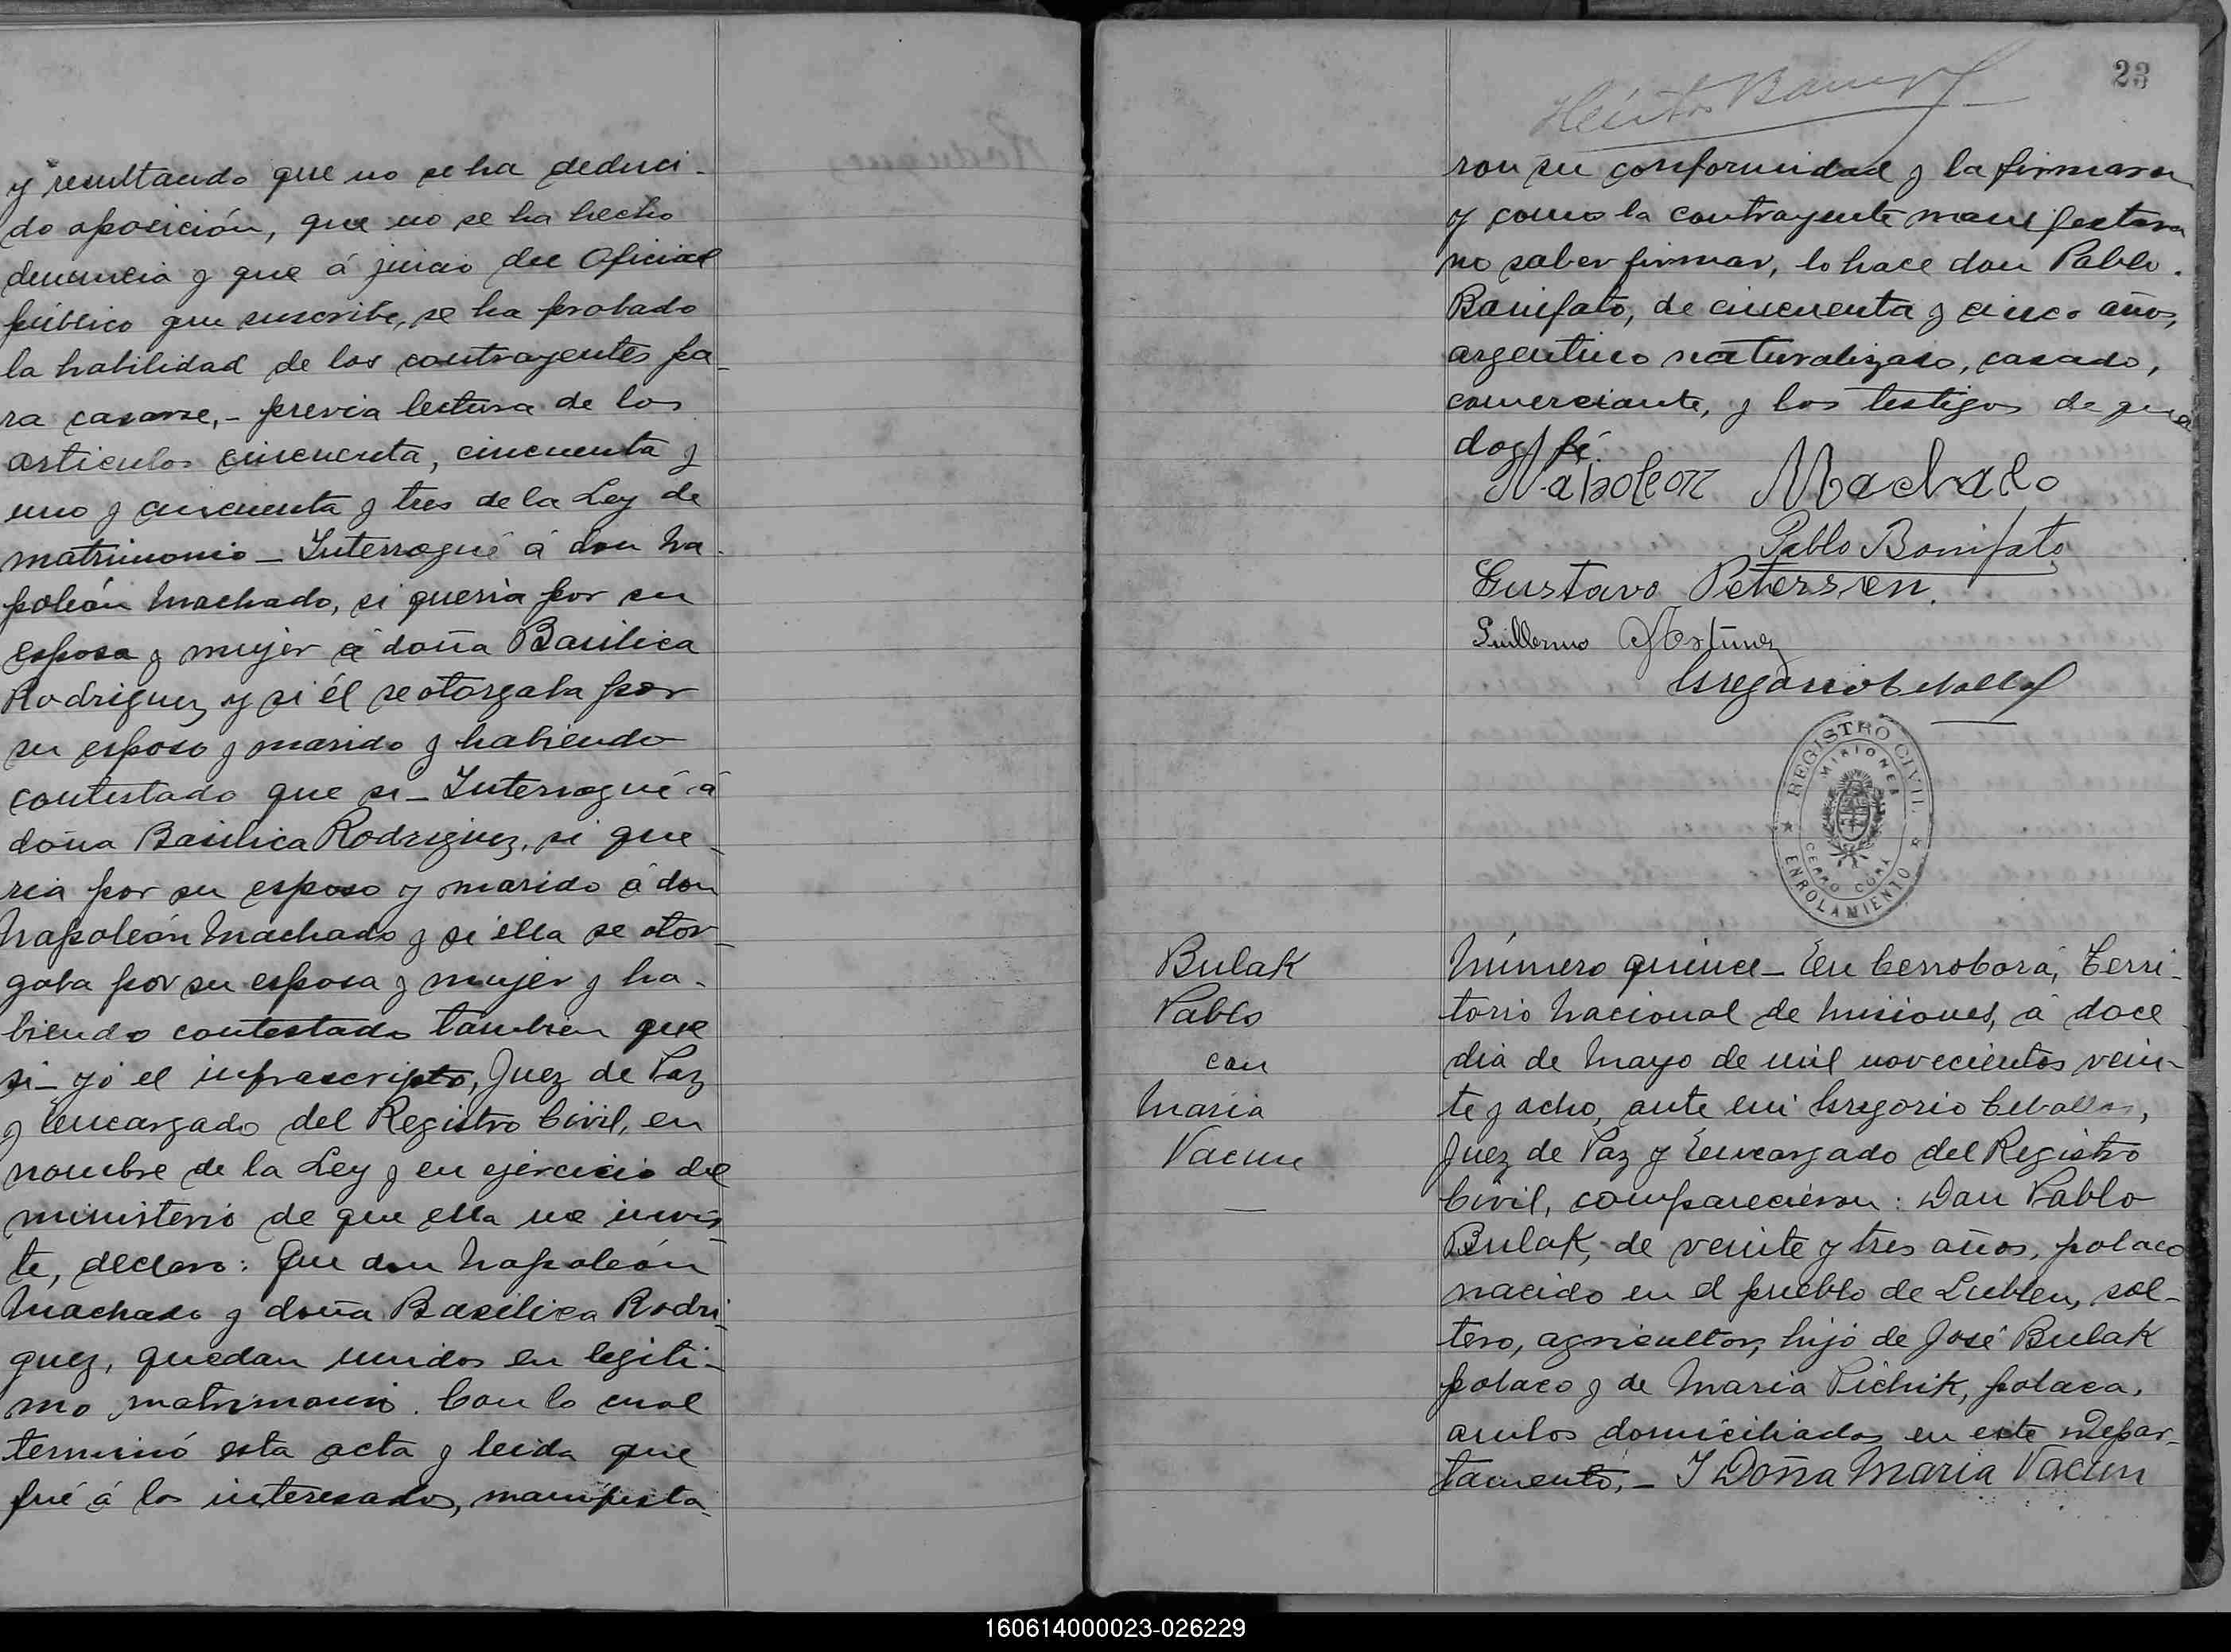 y resultando que no se ha deduci-
do oposición, que no se ha hecho
denuncia y que á juicio del Oficial
público que suscribe, se ha probado
la habilidad de los contrayentes pa-
ra casarse,- previa lectura de los
articulos cincuenta, cincuenta y
uno y cincuenta y tres de la Ley de
matrimonio - Interrogué á don Na-
poleón Machado, si queria por su
esposa y mujer á doña Basilica
Rodriguez y si él se otorgaba por
su esposo y marido y habiendo
contestado que si - Interrogué á
doña Basilica Rodriguez, si que-
ria por su esposo y marido á don
Napoleón Machado y si ella se otor-
gaba por su esposa y mujer y ha-
biendo contestado tambien que
si - yó el infrascripto, Juez de Paz
y Encargado del Registro Civil, en
nombre de la Ley y en ejercicio del
ministerio de que ella me invis-
te, declaro: Que don Napoleón
Machado y doña Basilica Rodri-
guez, quedan unidos en legiti-
mo matrimonio. Con lo cual
terminó esta acta y leida que
fué á los interesados, manifesta-
23
ron su conformidad y la firmaron
y como la contrayente manifestara
no saber firmar, lo hace don Pablo
Bonifato, de cincuenta y cinco años,
argentino naturalizado, casado,
comerciante, y los testigos de que
doy fé.
Napoleon Machado
Pablo Bonifato
Gustavo Peterssen.
Guillermo Martinez
Gregorio Ceballos
REGISTRO CIVIL
MISIONES
CERRO CORÁ
ENROLAMIENTO
Bulak
Pablo
con
Maria
Vacun
Número quince - En Cerro Corá, Terri-
torio Nacional de Misiones, á doce
dia de Mayo de mil novecientos vein-
te y ocho, ante mi Gregorio Ceballos,
Juez de Paz y Encargado del Registro
Civil, comparecieron: Don Pablo
Bulak, de veinte y tres años, polaco
nacido en el pueblo de Lublen, sol-
tero, agricultor, hijo de José Bulak
polaco y de Maria Pichik, polaca,
ambos domiciliados en este Depar-
tamento,- Y Doña Maria Vacun
160614000023-026229